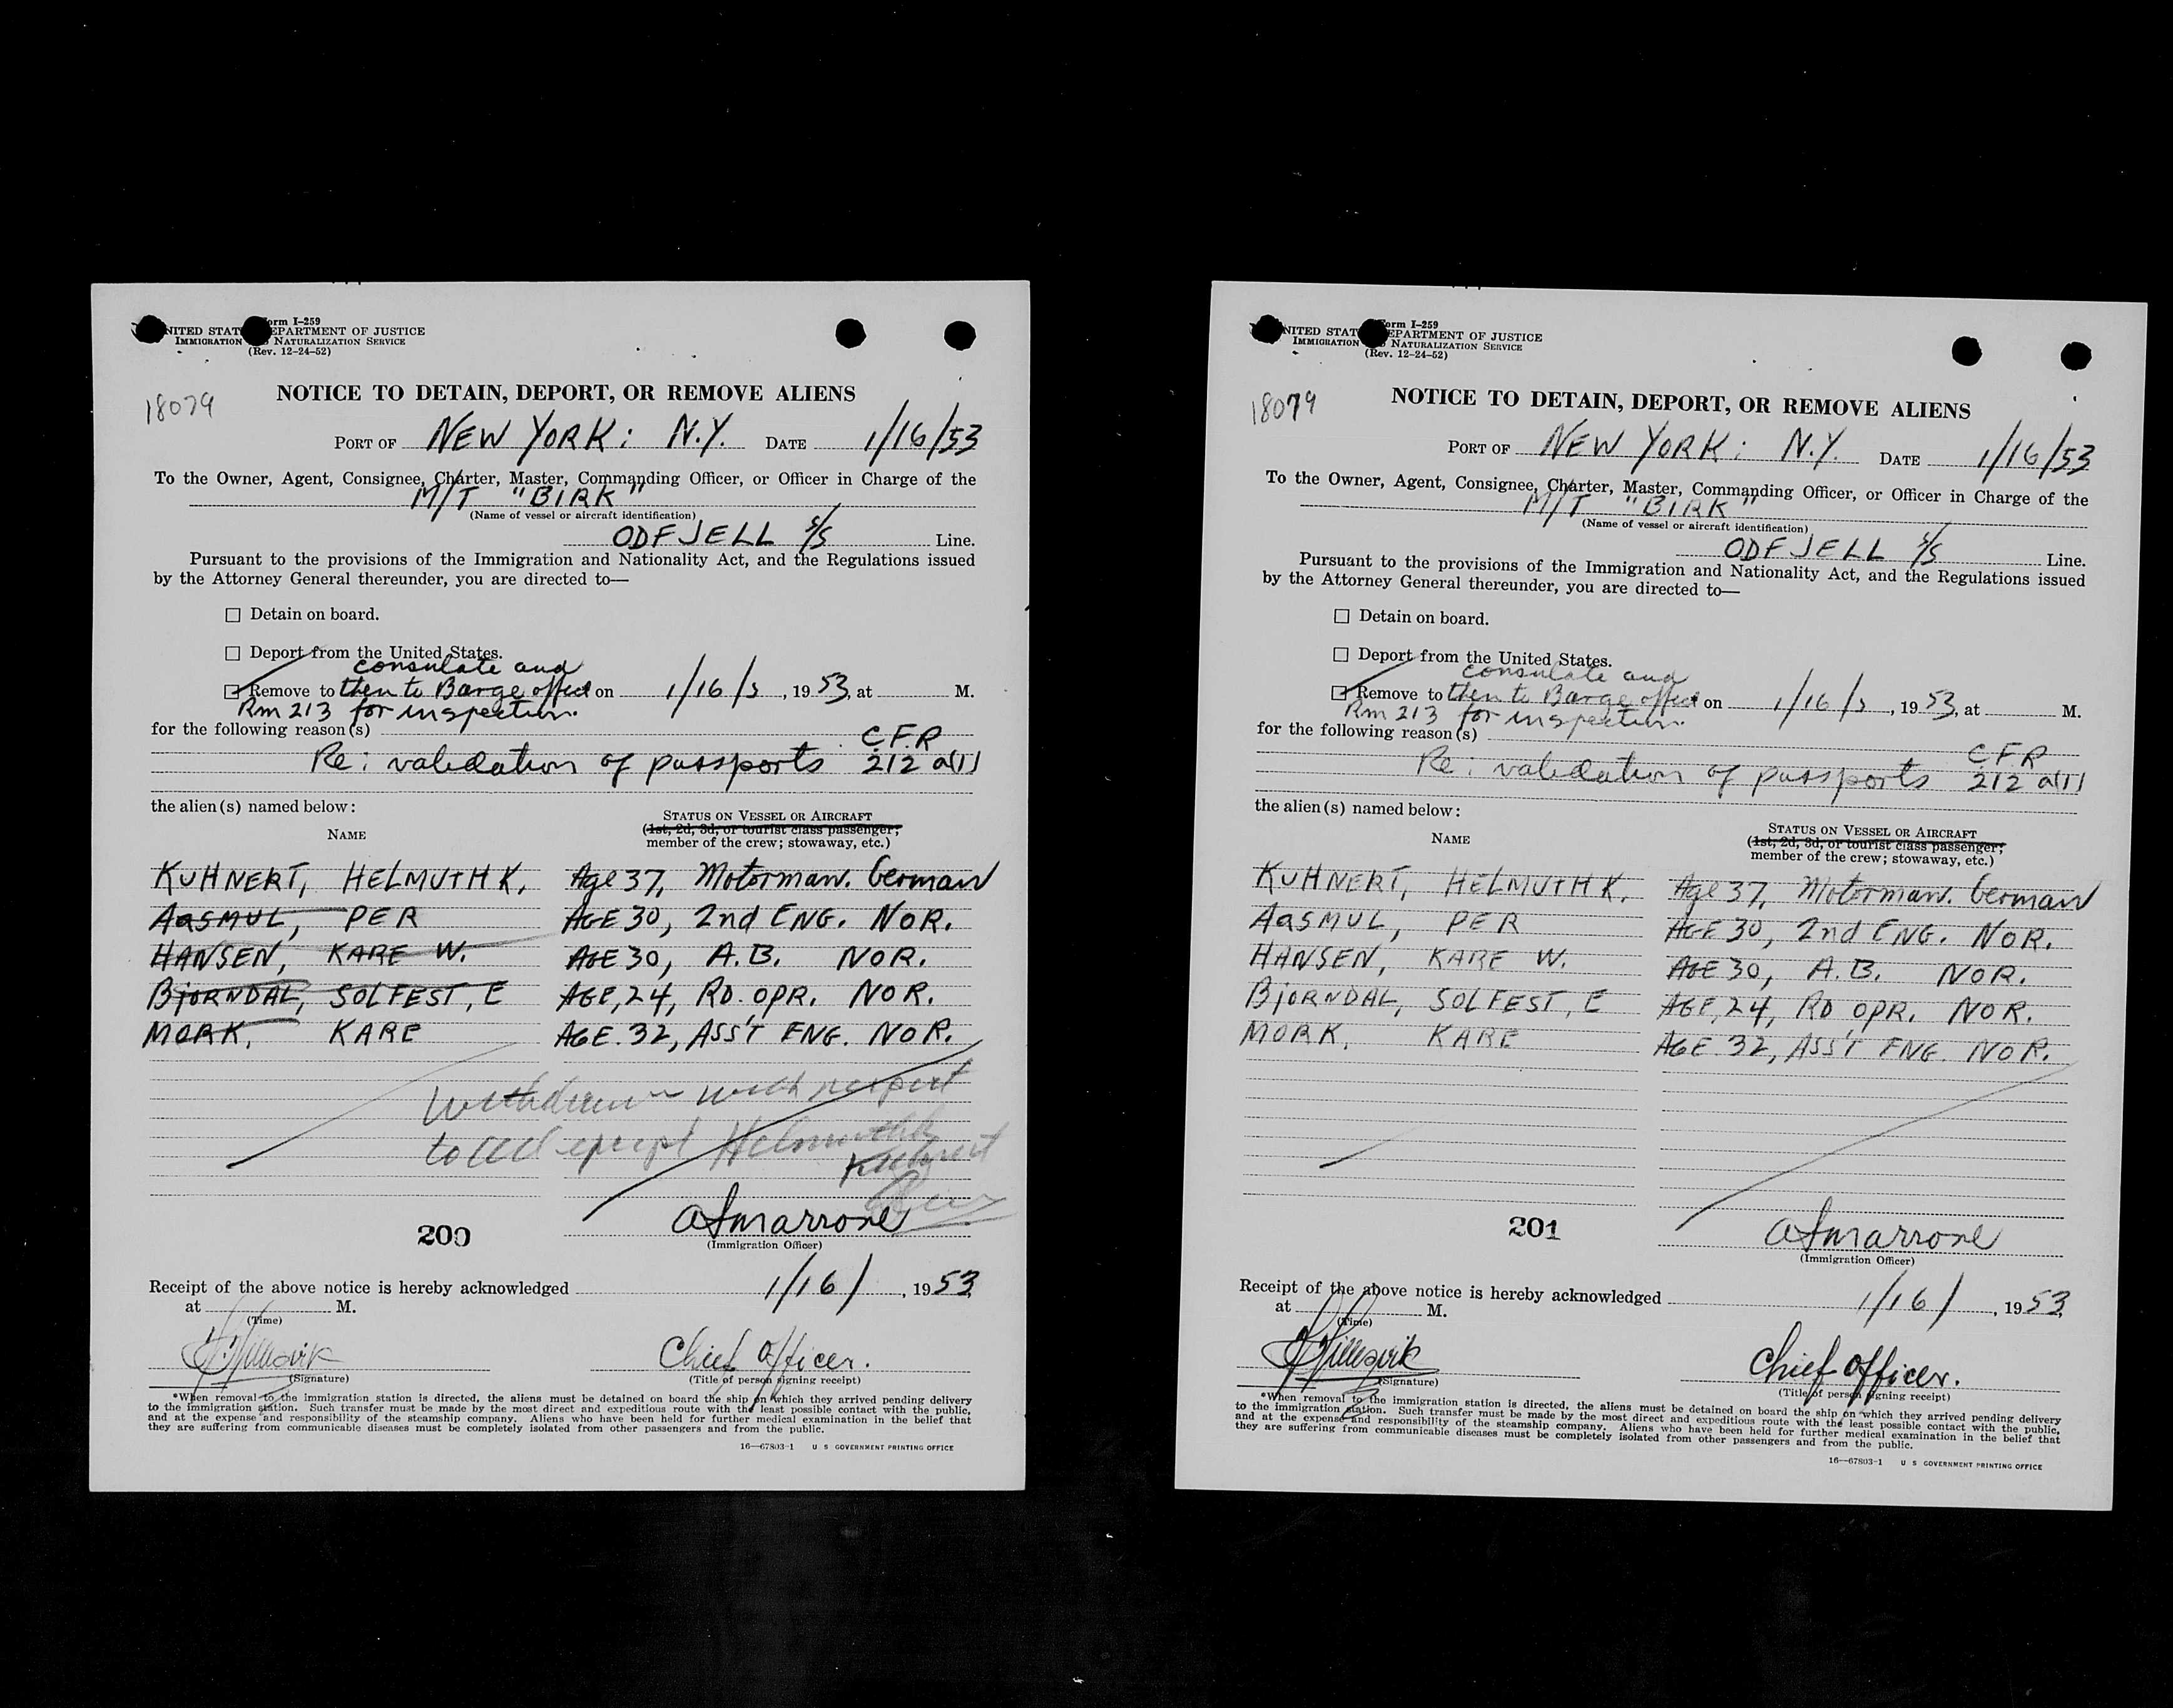 Form I-259
UNITED STATES DEPARTMENT OF JUSTICE
IMMIGRATION AND NATURALIZATION SERVICE
(Rev. 12-24-52)
18079
NOTICE TO DETAIN, DEPORT, OR REMOVE ALIENS
PORT OF NEW YORK: N.Y. DATE 1/16/53
To the Owner, Agent, Consignee, Charter, Master, Commanding Officer, or Officer in Charge of the
M/T "BIRK"
(Name of vessel or aircraft identification)
ODFJELL S/S Line.
Pursuant to the provisions of the Immigration and Nationality Act, and the Regulations issued
by the Attorney General thereunder, you are directed to—
☐ Detain on board.
☐ Deport from the United States.
consulate and
☐ Remove to then to Barge office on 1/16/5, 1953, at M.
Rm 213 for inspection.
for the following reason(s)
C.F.R
Re: validation of passports 212 a(1)
the alien(s) named below:
NAME
STATUS ON VESSEL OR AIRCRAFT
(1st, 2d, 3d, or tourist class passenger;
member of the crew; stowaway, etc.)
KUHNERT, HELMUTH K. Age 37, Motorman. German
AASMUL, PER AGE 30, 2nd ENG. NOR.
HANSEN, KARE W. AGE 30, A.B. NOR.
BJORNDAL, SOLFEST, E AGE, 24, RD. OPR. NOR.
MORK, KARE AGE. 32, ASS'T ENG. NOR.
Withdrawn with respect
to all except Helmuth K
Kuhnert
200
(Immigration Officer)
Receipt of the above notice is hereby acknowledged 1/16/, 1953
at M.
(Time)
Chief Officer.
(Signature) (Title of person signing receipt)
*When removal to the immigration station is directed, the aliens must be detained on board the ship on which they arrived pending delivery
to the immigration station. Such transfer must be made by the most direct and expeditious route with the least possible contact with the public,
and at the expense and responsibility of the steamship company. Aliens who have been held for further medical examination in the belief that
they are suffering from communicable diseases must be completely isolated from other passengers and from the public.
16—67803-1 U S GOVERNMENT PRINTING OFFICE
Form I-259
UNITED STATES DEPARTMENT OF JUSTICE
IMMIGRATION AND NATURALIZATION SERVICE
(Rev. 12-24-52)
18079
NOTICE TO DETAIN, DEPORT, OR REMOVE ALIENS
PORT OF NEW YORK: N.Y. DATE 1/16/53
To the Owner, Agent, Consignee, Charter, Master, Commanding Officer, or Officer in Charge of the
M/T "BIRK"
(Name of vessel or aircraft identification)
ODFJELL S/S Line.
Pursuant to the provisions of the Immigration and Nationality Act, and the Regulations issued
by the Attorney General thereunder, you are directed to—
☐ Detain on board.
☐ Deport from the United States.
consulate and
☐ Remove to then to Barge office on 1/16/5, 1953, at M.
Rm 213 for inspection.
for the following reason(s)
C.F.R
Re: validation of passports 212 a(1)
the alien(s) named below:
NAME
STATUS ON VESSEL OR AIRCRAFT
(1st, 2d, 3d, or tourist class passenger;
member of the crew; stowaway, etc.)
KUHNERT, HELMUTH K. Age 37, Motorman. German
AASMUL, PER AGE 30, 2nd ENG. NOR.
HANSEN, KARE W. AGE 30, A.B. NOR.
BJORNDAL, SOLFEST, E AGE, 24, RD OPR. NOR.
MORK. KARE AGE. 32, ASS'T ENG. NOR.
201
(Immigration Officer)
Receipt of the above notice is hereby acknowledged 1/16/, 1953
at M.
(Time)
Chief Officer.
(Signature) (Title of person signing receipt)
*When removal to the immigration station is directed, the aliens must be detained on board the ship on which they arrived pending delivery
to the immigration station. Such transfer must be made by the most direct and expeditious route with the least possible contact with the public,
and at the expense and responsibility of the steamship company. Aliens who have been held for further medical examination in the belief that
they are suffering from communicable diseases must be completely isolated from other passengers and from the public.
16—67803-1 U S GOVERNMENT PRINTING OFFICE